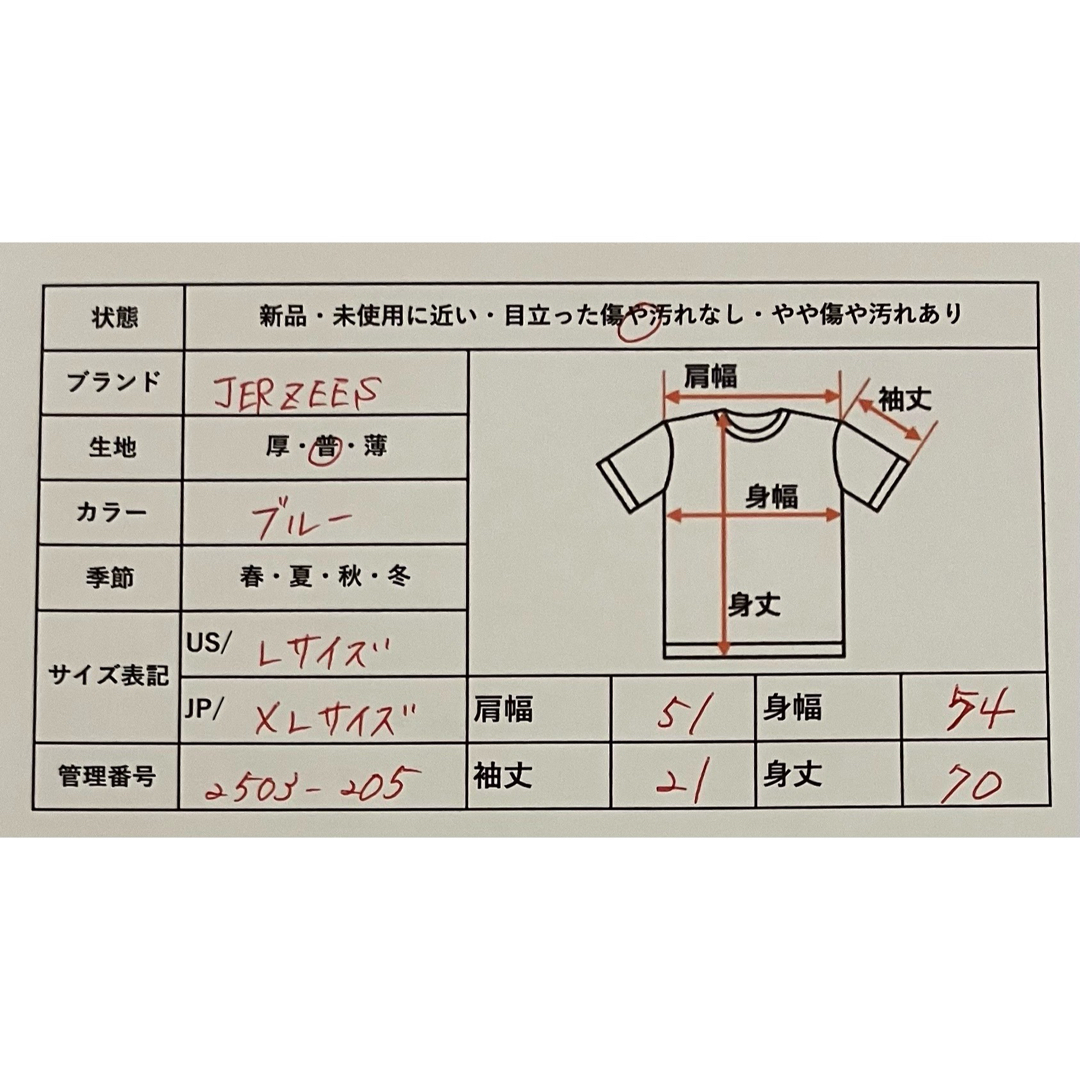 状態 新品・未使用に近い・目立った傷や汚れなし・やや傷や汚れあり
ブランド JERZEES
生地 厚・普・薄
カラー ブルー
季節 春・夏・秋・冬
サイズ表記
US/ Lサイズ
JP/ XLサイズ
管理番号 2503-205
肩幅
袖丈
身幅
身丈
肩幅 51 身幅 54
袖丈 21 身丈 70